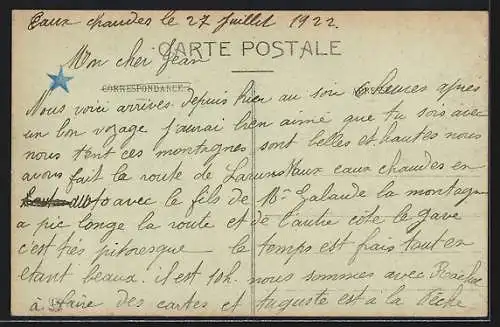 Eaux chaudes le 27 Juillet 1922.
CARTE POSTALE
Mon cher Jean
CORRESPONDANCE
Nous voici arrivés depuis hier au soir 6 heures après
un bon voyage j'aurai bien aimé que tu sois avec
nous tent ces montagnes sont belles et hautes nous
avons fait le route de Laruns aux eaux chaudes en
auto avec le fils de Mr Galaude la montagne
a pic longe la route et de l'autre côte le gave
c'est très pitoresque le temps est frais tout en
etant beaux. il est 10h. nous sommes avec
à faire des cartes et auguste est à la Pêche